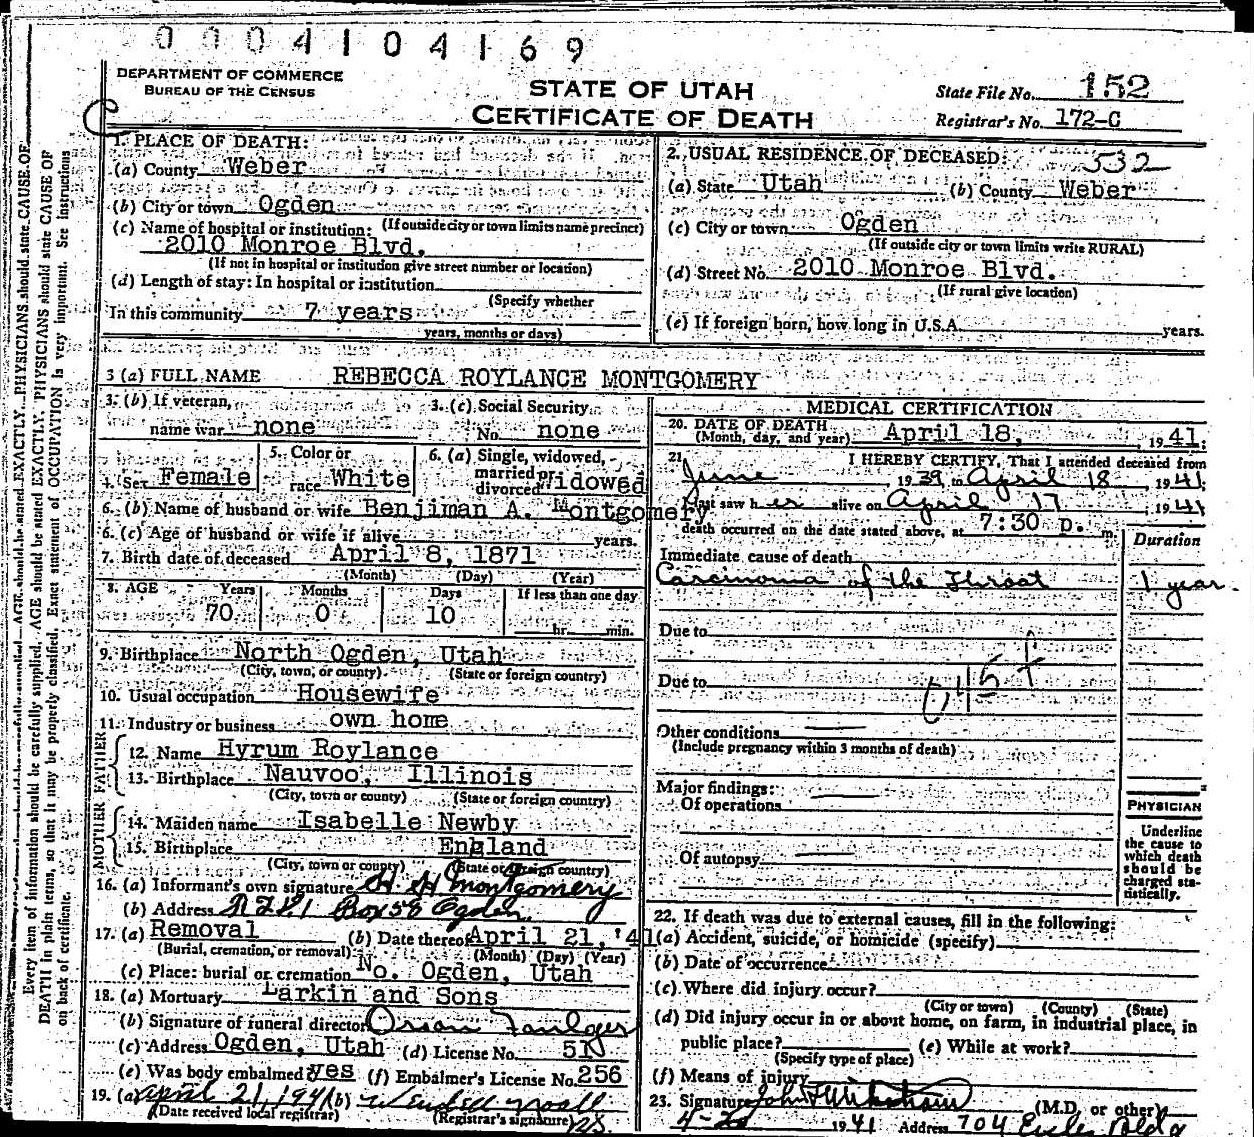 0004104169
DEPARTMENT OF COMMERCE
BUREAU OF THE CENSUS
STATE OF UTAH
CERTIFICATE OF DEATH
State File No. 152
Registrar's No. 172-C
1. PLACE OF DEATH:
(a) County Weber
(b) City or town Ogden
(If outside city or town limits name precinct)
(c) Name of hospital or institution:
2010 Monroe Blvd.
(If not in hospital or institution give street number or location)
(d) Length of stay: In hospital or institution
(Specify whether
In this community 7 years
years, months or days)
2. USUAL RESIDENCE OF DECEASED: 532
(a) State Utah (b) County Weber
(c) City or town Ogden
(If outside city or town limits write RURAL)
(d) Street No. 2010 Monroe Blvd.
(If rural give location)
(e) If foreign born, how long in U.S.A. years.
3 (a) FULL NAME REBECCA ROYLANCE MONTGOMERY
3. (b) If veteran, name war none
3. (c) Social Security No. none
4. Sex Female
5. Color or race White
6. (a) Single, widowed, married or divorced Widowed
6. (b) Name of husband or wife Benjiman A. Montgomery
6. (c) Age of husband or wife if alive years.
7. Birth date of deceased April 8, 1871
(Month) (Day) (Year)
8. AGE Years Months Days If less than one day
70 0 10 hr. min.
9. Birthplace North Ogden, Utah
(City, town, or county) (State or foreign country)
10. Usual occupation Housewife
11. Industry or business own home
FATHER
12. Name Hyrum Roylance
13. Birthplace Nauvoo, Illinois
(City, town or county) (State or foreign country)
MOTHER
14. Maiden name Isabelle Newby
15. Birthplace England
(City, town or county) (State or foreign country)
16. (a) Informant's own signature H. H. Montgomery
(b) Address Box 58 Ogden.
17. (a) Removal (b) Date thereof April 21, '41
(Burial, cremation, or removal) (Month) (Day) (Year)
(c) Place: burial or cremation No. Ogden, Utah
18. (a) Mortuary Larkin and Sons
(b) Signature of funeral director Orson Faulger
(c) Address Ogden, Utah (d) License No. 51
(e) Was body embalmed? yes (f) Embalmer's License No. 256
19. (a) April 21, 1941 (b)
(Date received local registrar) (Registrar's signature)
MEDICAL CERTIFICATION
20. DATE OF DEATH
(Month, day, and year) April 18, 1941.
21. I HEREBY CERTIFY, That I attended deceased from
June 1939, to April 18 1941.
I last saw her alive on April 17 1941
death occurred on the date stated above, at 7:30 p. m.
Immediate cause of death Duration
Carcinoma of the Throat 1 year.
Due to
Due to
045 f
Other conditions
(Include pregnancy within 3 months of death)
Major findings:
Of operations
Of autopsy
PHYSICIAN
Underline
the cause to
which death
should be
charged sta-
tistically.
22. If death was due to external causes, fill in the following:
(a) Accident, suicide, or homicide (specify)
(b) Date of occurrence
(c) Where did injury occur?
(City or town) (County) (State)
(d) Did injury occur in or about home, on farm, in industrial place, in
public place? (e) While at work?
(Specify type of place)
(f) Means of injury
23. Signature (M.D. or other)
1941 Address 704 Eccles Bldg
Every item of information should be carefully supplied. AGE should be stated EXACTLY. PHYSICIANS should state CAUSE OF
DEATH in plain terms, so that it may be properly classified. Exact statement of OCCUPATION is very important. See instructions
on back of certificate.